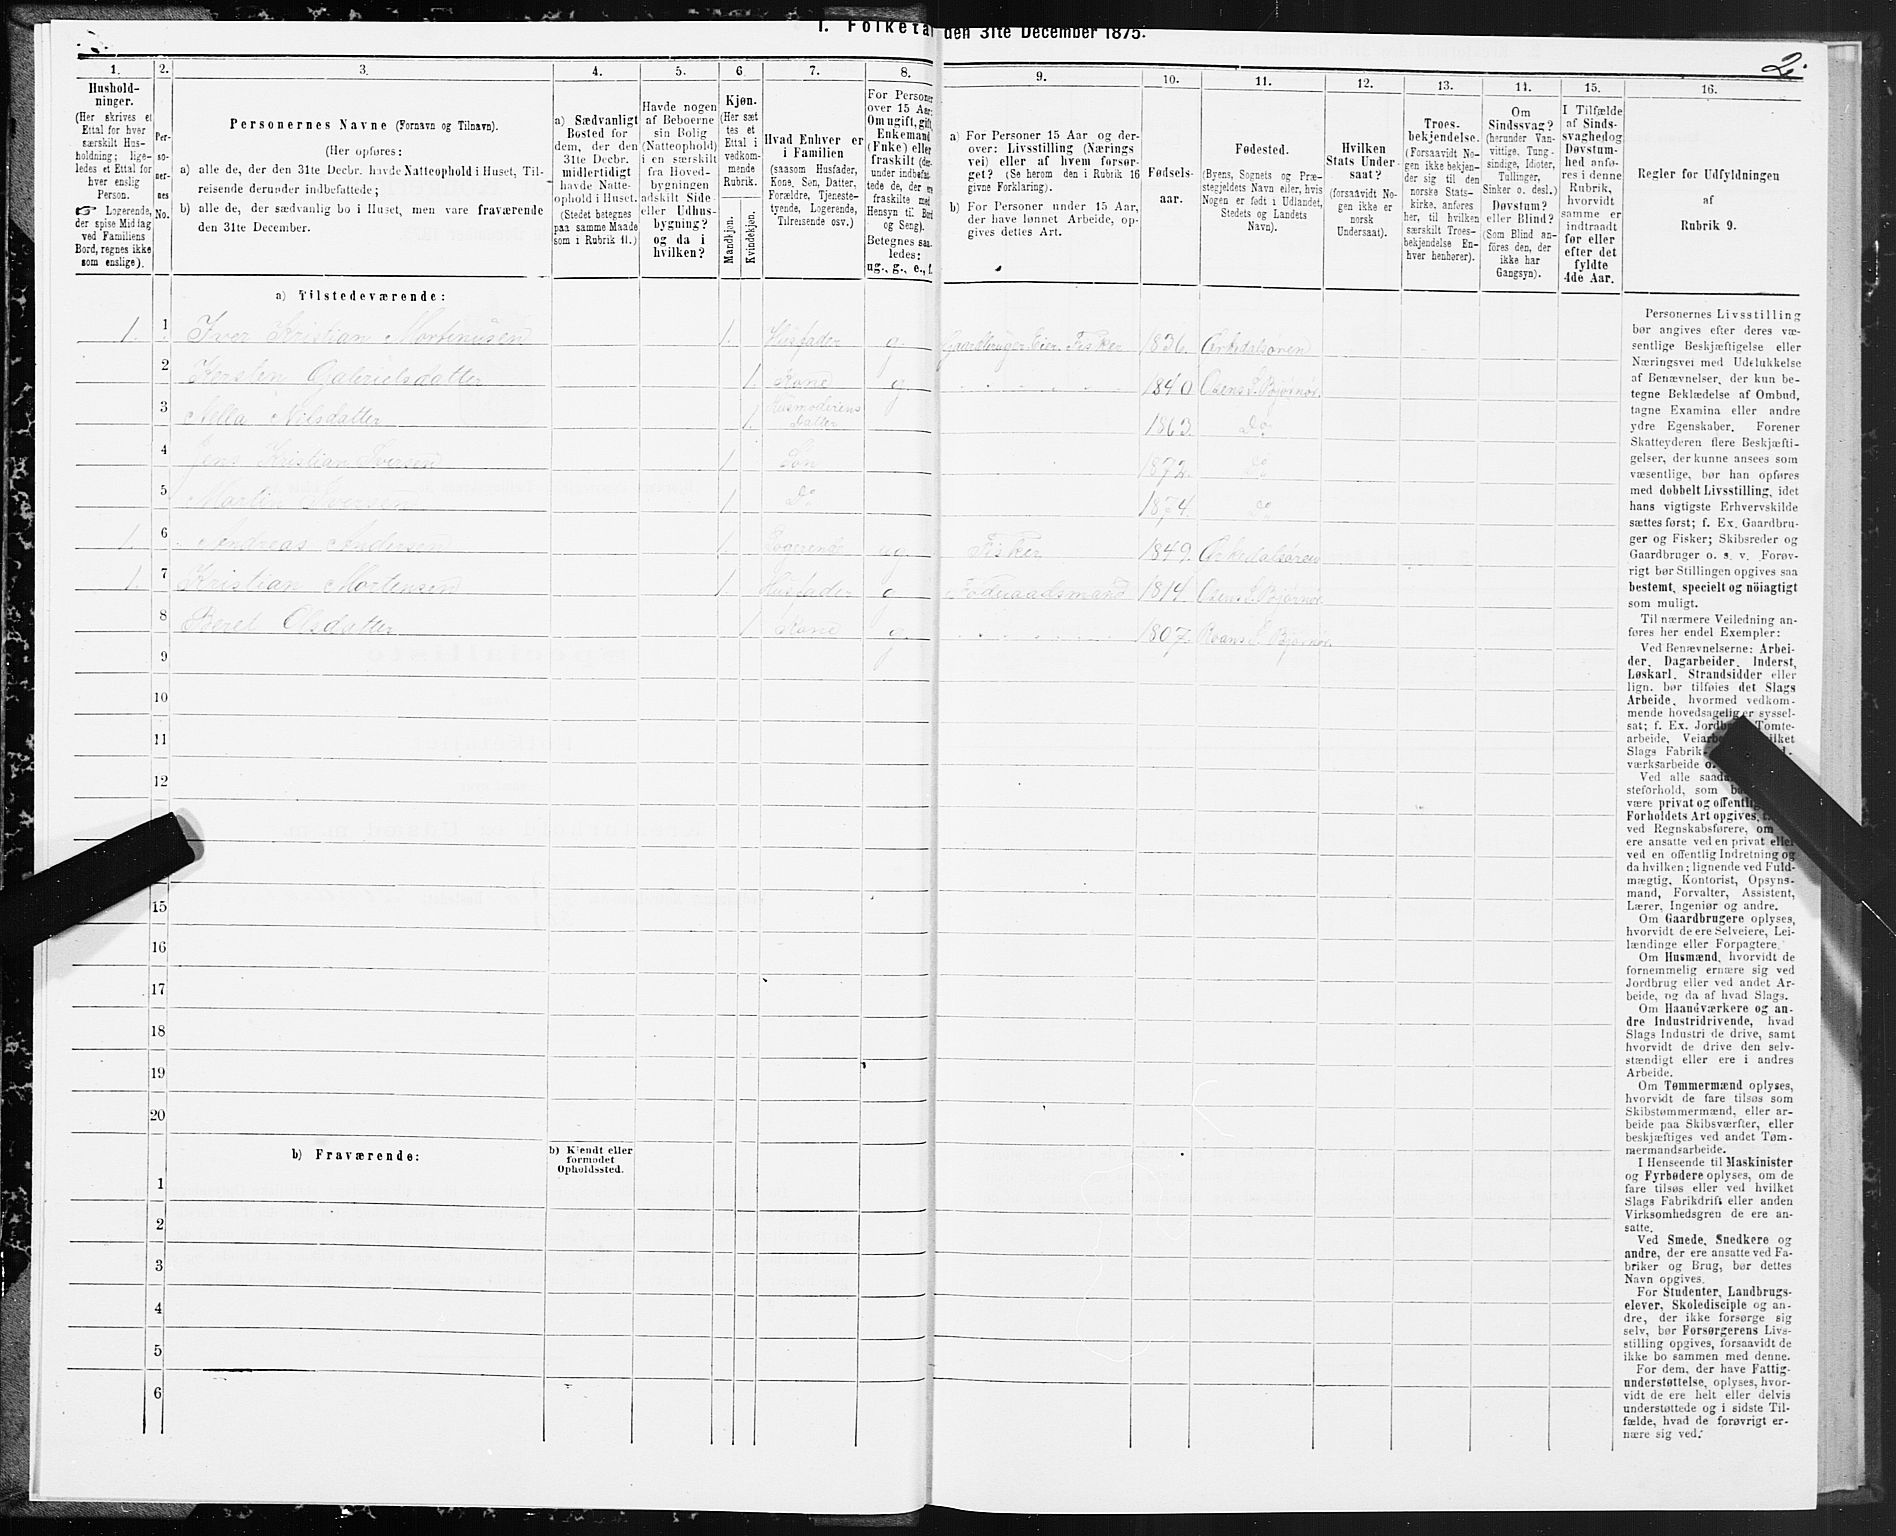 1. Folketal den 31te December 1875.
2.
1.
Hushold-
ninger.
(Her skrives et
Ettal for hver
særskilt Hus-
holdning; lige-
ledes et Ettal for
hver enslig
Person.
☞ Logerende,
der spise Middag
ved Familiens
Bord, regnes ikke
som enslige).
2.
Per-
so-
ner-
nes
No.
3.
Personernes Navne (Fornavn og Tilnavn).
(Her opføres:
a) alle de, der den 31te Decbr. havde Natteophold i Huset, Til-
reisende derunder indbefattede;
b) alle de, der sædvanlig bo i Huset, men vare fraværende
den 31te December.
4.
a) Sædvanligt
Bosted for
dem, der den
31te Decbr.
midlertidigt
havde Natte-
ophold i Huset.
(Stedet betegnes
paa samme Maade
som i Rubrik 11.)
5.
Havde nogen
af Beboerne
sin Bolig
(Natteophold)
i en særskilt
fra Hoved-
bygningen
adskilt Side-
eller Udhus-
bygning?
og da i
hvilken?
6.
Kjøn.
(Her sæt-
tes et
Ettal i
vedkom-
mende
Rubrik.
Mandkjøn.
Kvindekjøn.
7.
Hvad Enhver er
i Familien
(saasom Husfader,
Kone, Søn, Datter,
Forældre, Tjeneste-
tyende, Logerende,
Tilreisende osv.)
8.
For Personer
over 15 Aar:
Om ugift, gift,
Enkemand
(Enke) eller
fraskilt (der-
under indbefat-
tede de, der ere
fraskilte med
Hensyn til Bord
og Seng).
Betegnes saa-
ledes:
ug., g., e., f.
9.
a) For Personer 15 Aar og der-
over: Livsstilling (Nærings-
vei) eller af hvem forsør-
get? (Se herom den i Rubrik 16
givne Forklaring).
b) For Personer under 15 Aar,
der have lønnet Arbeide, op-
gives dettes Art.
10.
Fødsels-
aar.
11.
Fødested.
(Byens, Sognets og Præ-
stegjeldets Navn eller, hvis
Nogen er født i Udlandet,
Stedets og Landets
Navn).
12.
Hvilken
Stats Under-
saat?
(forsaavidt No-
gen ikke er
norsk
Undersaat).
13.
Troes-
bekjendelse.
(Forsaavidt No-
gen ikke bekjen-
der sig til den
norske Stats-
kirke, anføres
her, til hvilken
særskilt Troes-
bekjendelse En-
hver henhører).
14.
Om
Sindssvag?
(herunder Van-
vittige, Tung-
sindige, Idioter,
Tullinger,
Sinker o. desl.)
Døvstum?
eller Blind?
(Som Blind an-
føres den, der
ikke har
Gangsyn).
15.
I Tilfælde
af Sinds-
svaghed og
Døvstum-
hed anfø-
res i denne
Rubrik,
hvorvidt
samme er
indtraadt
før eller
efter det
fyldte
4de Aar.
16.
Regler for Udfyldningen
af
Rubrik 9.
a) Tilstedeværende:
1. 1 Iver Kristian Mortinusen 1. Husfader g Gaardbruger Eier. Fisker 1836.
2 Kersten Gabrielsdatter 1. Kone g 1840 Osens S. Bjørnør.
3 Nilsdatter 1. Husmoderens Datter 1863. Do
4 Jens Kristian Iversen 1 Søn 1872. Do
5 Martin Iversen 1 Do 1874. Do
1. 6 Andreas Andersen 1. Logerende ug Fisker 1849.
1. 7 Kristian Mortensen 1. Husfader g Føderaadsmand 1814. Osens S. Bjørnør
8 Beret Olsdatter 1 Kone g. 1807. Roans S. Bjørnør.
9
10
11
12
15
16
17
18
19
20
b) Fraværende:
b) Kjendt eller
formodet
Opholdssted.
1
2
3
4
5
6
Personernes Livsstilling
bør angives efter deres væ-
sentlige Beskjæftigelse eller
Næringsvei med Udelukkelse
af Benævnelser, der kun be-
tegne Beklædelse af Ombud,
tagne Examina eller andre
ydre Egenskaber. Forener
Skatteyderen flere Beskjæfti-
gelser, der kunne ansees som
væsentlige, bør han opføres
med dobbelt Livsstilling, idet
hans vigtigste Erhvervskilde
sættes først; f. Ex. Gaardbru-
ger og Fisker; Skibsreder og
Gaardbruger o. s. v. Forøv-
rigt bør Stillingen opgives saa
bestemt, specielt og nöiagtigt
som muligt.
Til nærmere Veiledning an-
føres her endel Exempler:
Ved Benævnelserne: Arbei-
der, Dagarbeider, Inderst,
Løskarl, Strandsidder eller
lign. bør tilføies det Slags
Arbeide, hvormed vedkom-
mende hovedsagelig er syssel-
sat; f. Ex. Tomte-
arbeide,
Slags Fabrik-
værksarbeide
Ved alle
steforhold, som
være privat og offentlig
Forholdets Art opgives,
ved Regnskabsførere, om
ere ansatte ved en privat eller
ved en offentlig Indretning og
da hvilken; lignende ved Fuld-
mægtig, Kontorist, Opsyns-
mand, Forvalter, Assistent,
Lærer, Ingeniør og andre.
Om Gaardbrugere oplyses,
hvorvidt de ere Selveiere, Lei-
lændinge eller Forpagtere.
Om Husmænd, hvorvidt de
fornemmelig ernære sig ved
Jordbrug eller ved andet Ar-
beide, og da af hvad Slags.
Om Haandværkere og an-
dre Industridrivende, hvad
Slags Industri de drive, samt
hvorvidt de drive den selv-
stændigt eller ere i andres
Arbeide.
Om Tømmermænd oplyses,
hvorvidt de fare tilsøs som
Skibstømmermænd, eller ar-
beide paa Skibsværfter, eller
beskjæftiges ved andet Tøm-
mermandsarbeide.
I Henseende til Maskinister
og Fyrbødere oplyses, om de
fare tilsøs eller ved hvilket
Slags Fabrikdrift eller anden
Virksomhedsgren de ere an-
satte.
Ved Smede, Snedkere og
andre, der ere ansatte ved Fa-
briker og Brug, bør dettes
Navn opgives.
For Studenter, Landbrugs-
elever, Skoledisciple og an-
dre, der ikke forsørge sig
selv, bør Forsørgerens Livs-
stilling opgives, forsaavidt de
ikke bo sammen med denne.
For dem, der have Fattig-
understøttelse, oplyses, hvor-
vidt de ere helt eller delvis
understøttede og i sidste Til-
fælde, hvad de forøvrigt er-
nære sig ved.